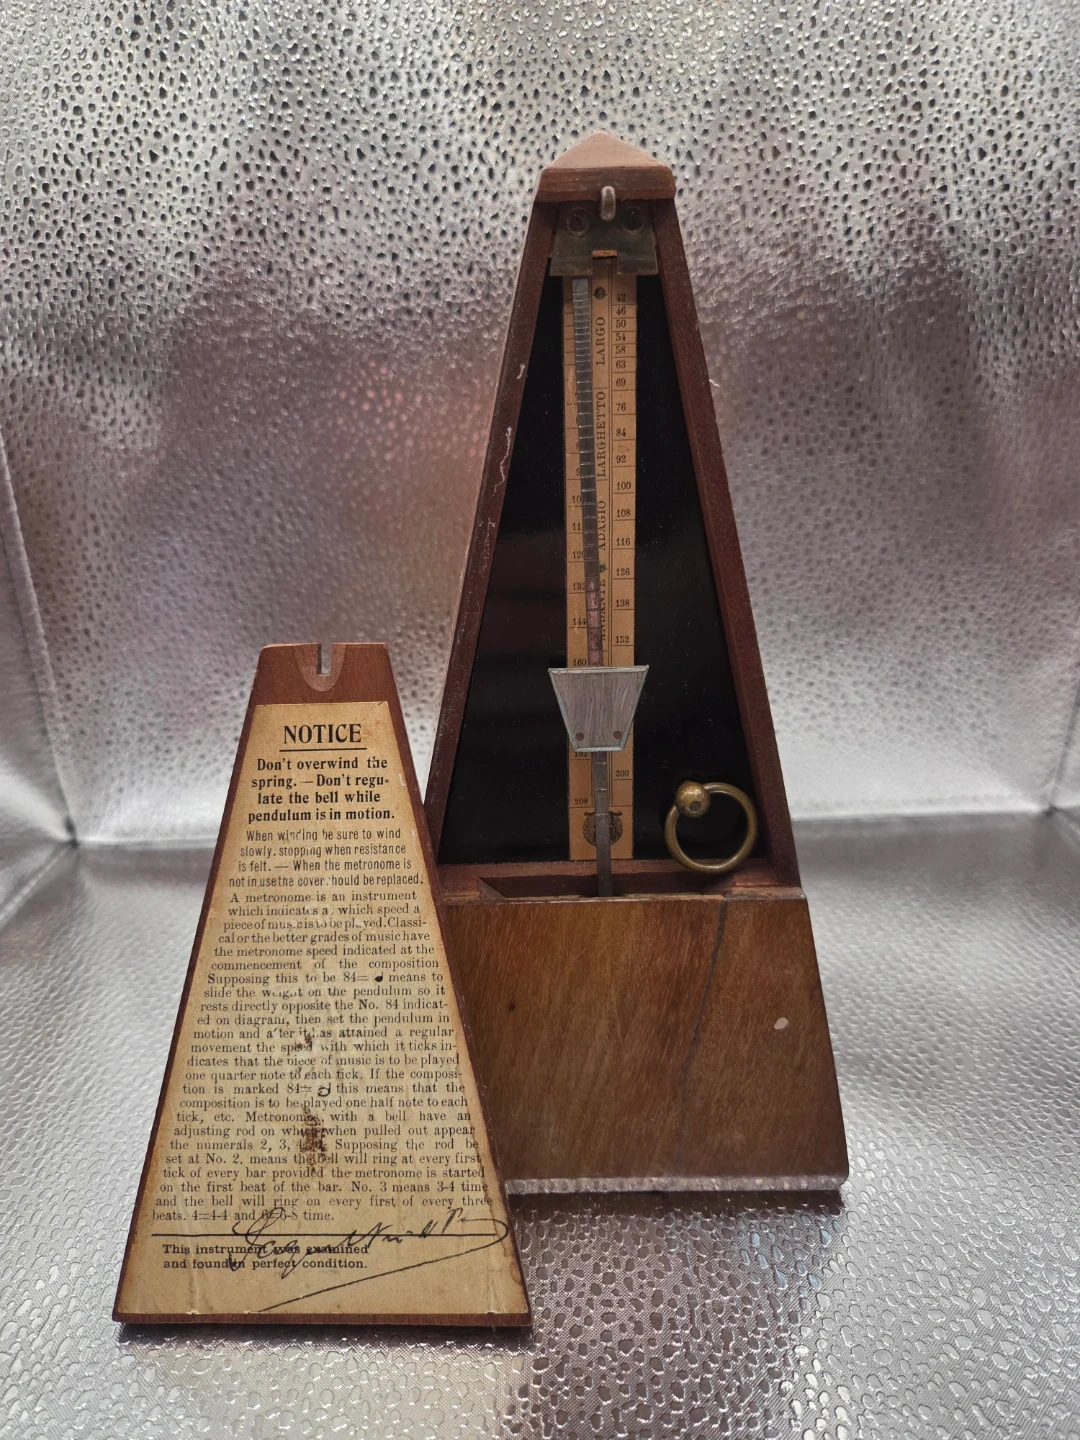 NOTICE
Don't overwind the
spring. — Don't regu-
late the bell while
pendulum is in motion.
When winding be sure to wind
slowly, stopping when resistance
is felt. — When the metronome is
not in use the cover should be replaced.
A metronome is an instrument
which indicates at which speed a
piece of music is to be played. Classi-
cal or the better grades of music have
the metronome speed indicated at the
commencement of the composition
Supposing this to be 84= ♩ means to
slide the weight on the pendulum so it
rests directly opposite the No. 84 indicat-
ed on diagram, then set the pendulum in
motion and after it has attained a regular
movement the speed with which it ticks in-
dicates that the piece of music is to be played
one quarter note to each tick. If the composi-
tion is marked 84= this means that the
composition is to be played one half note to each
tick, etc. Metronome with a bell have an
adjusting rod on which when pulled out appear
the numerals 2, 3, Supposing the rod be
set at No. 2, means the bell will ring at every first
tick of every bar provided the metronome is started
on the first beat of the bar. No. 3 means 3-4 time
and the bell will ring on every first of every three
beats. 4=4-4 and 6=6-8 time.
This instrument was examined
and found in perfect condition.
LARGO
LARGHETTO
ADAGIO
ANDANTE
42
46
50
54
58
63
69
76
84
92
100
108
116
126
138
152
200
132
144
160
192
208